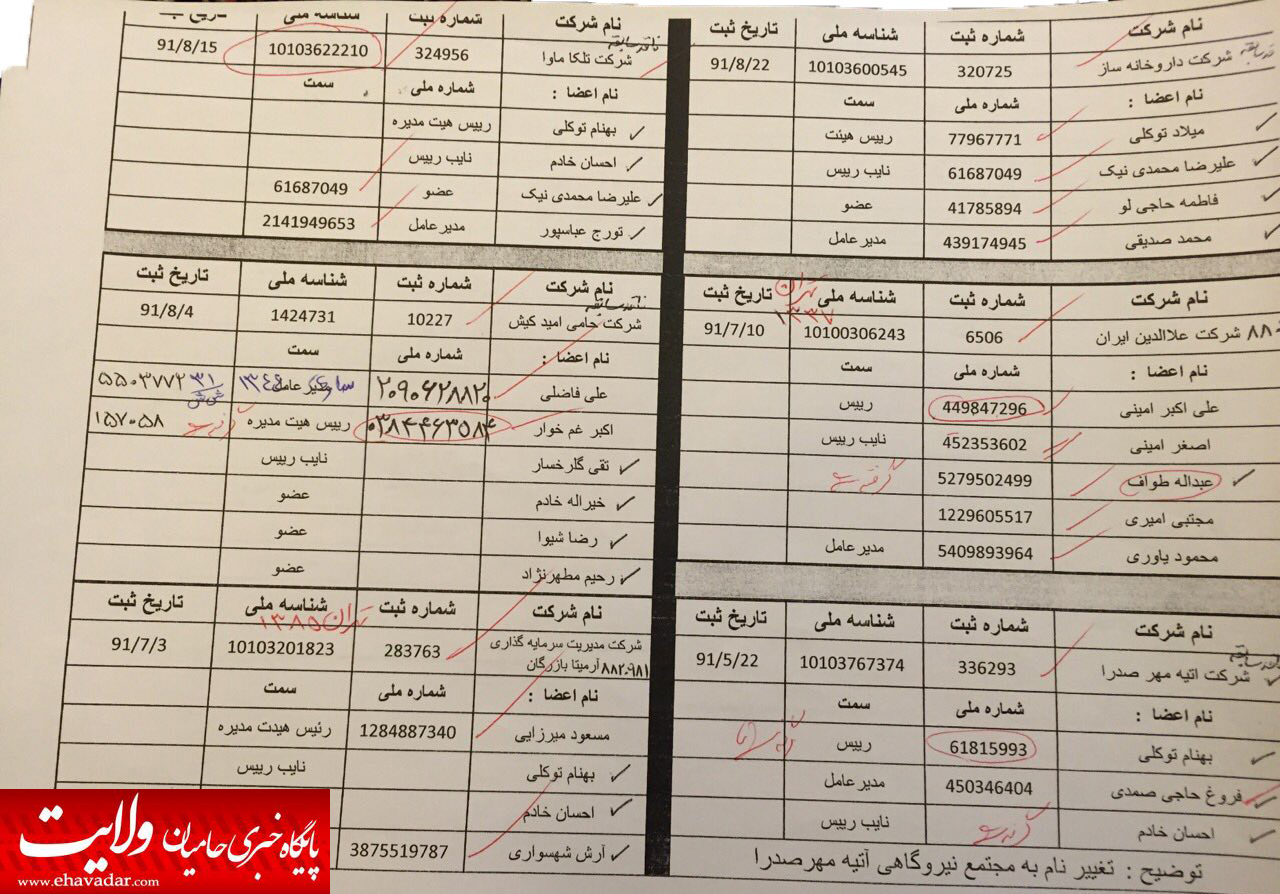 نام شرکت شماره ثبت شناسه ملی تاریخ ثبت
شرکت داروخانه ساز 320725 10103600545 91/8/22
نام اعضا : شماره ملی سمت
میلاد توکلی 77967771 رییس هیئت
علیرضا محمدی نیک 61687049 نایب رییس
فاطمه حاجی لو 41785894 عضو
محمد صدیقی 439174945 مدیر عامل
تهران
۱۳۳۷
نام شرکت شماره ثبت شناسه ملی تاریخ ثبت
۸۸۰ شرکت علاالدین ایران 6506 10100306243 91/7/10
نام اعضا : شماره ملی سمت
علی اکبر امینی 449847296 رییس
اصغر امینی 452353602 نایب رییس
عبداله طواف 5279502499
مجتبی امیری 1229605517
محمود یاوری 5409893964 مدیر عامل
نام شرکت شماره ثبت شناسه ملی تاریخ ثبت
شرکت اتیه مهر صدرا 336293 10103767374 91/5/22
نام اعضا : شماره ملی سمت
بهنام توکلی 61815993 رییس
فروغ حاجی صمدی 450346404 مدیر عامل
احسان خادم نایب رییس
توضیح : تغییر نام به مجتمع نیروگاهی آتیه مهرصدرا
نام شرکت شماره ثبت شناسه ملی تاریخ ثبت
فاقد سابقه
شرکت تلکا ماوا 324956 10103622210 91/8/15
نام اعضا : شماره ملی سمت
بهنام توکلی رییس هیت مدیره
احسان خادم نایب رییس
علیرضا محمدی نیک عضو 61687049
تورج عباسپور مدیر عامل 2141949653
نام شرکت شماره ثبت شناسه ملی تاریخ ثبت
فاقد سابقه
شرکت حامی امید کیش 10227 1424731 91/8/4
نام اعضا : شماره ملی سمت
علی فاضلی ۲۰۹۰۶۲۸۸۲۰ مدیر عامل ساری ۵۵۰۳۷۷۲
اکبر غم خوار ۰۳۸۴۴۶۳۵۸۴ رییس هیت مدیره ۱۵۷۰۵۸
تقی گلرخسار نایب رییس
خیراله خادم عضو
رضا شیوا عضو
رحیم مطهرنژاد عضو
نام شرکت شماره ثبت شناسه ملی تاریخ ثبت
تهران ۱۳۸۵
شرکت مدیریت سرمایه گذاری 283763 10103201823 91/7/3
آرمیتا بازرگان ۸۸۲۰۹۸۱
نام اعضا : شماره ملی سمت
مسعود میرزایی 1284887340 رئیس هیدت مدیره
بهنام توکلی نایب رییس
احسان خادم
آرش شهسواری 3875519787
پایگاه خبری حامیان ولایت
www.ehavadar.com